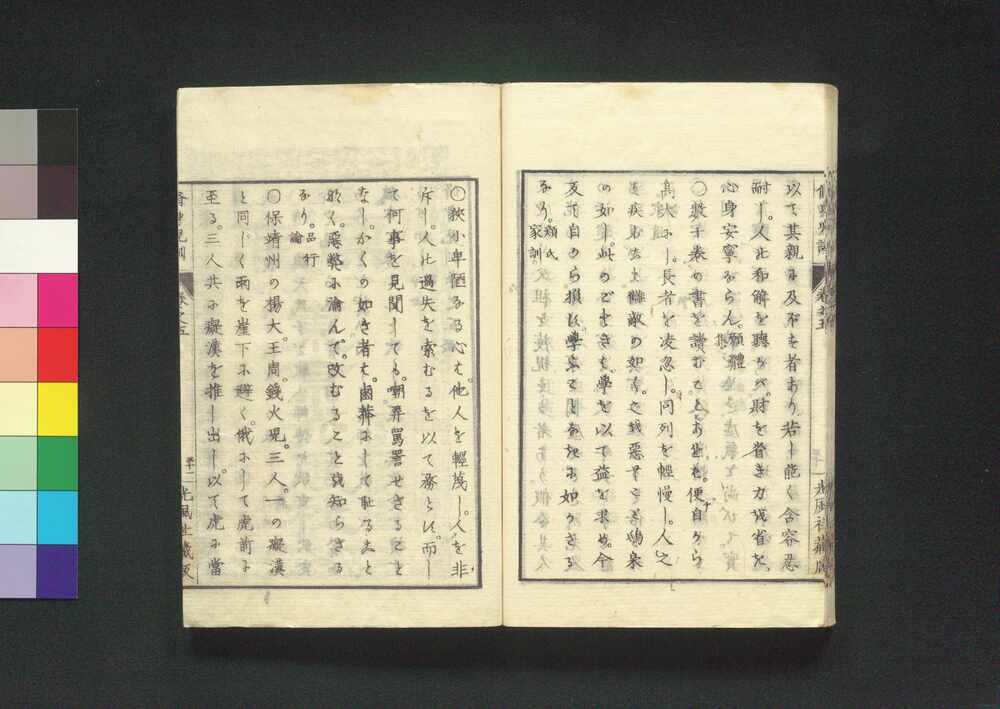 以て其親に及ぶを者あり。若し能く含容忍
耐し。人に和解を聽かバ。財を省き力を省き。
心身安寧ならん。願體
○數千卷の書を讀むで。とあれも。便自から
高大にし。長者を凌忽し。同列を輕慢し。人之
を疾むこと讎敵の如く。之を惡むこと鴟梟
の如し。此のごときも。學を以て益を求め。今
反て自から損し。學なきに如かざる
なり。顏氏家訓
○狹小卑陋なる心は。他人を輕蔑し。人を非
斥し。人に過失を索むるを以て務とし。而し
て何事を見聞しても。嘲弄罵詈せざること
なし。かくの如き者は。鹵莽にして耻ること
なく。惡弊に淪んで。改むることを知らざる
なり。品行論
○保靖州の楊大。王周錢火児。三人。一の癡漢
と同じく雨を崖下に避く。俄にして虎前に
至る。三人共に癡漢を推し出し。以て虎に當
卷之五
光風社藏版